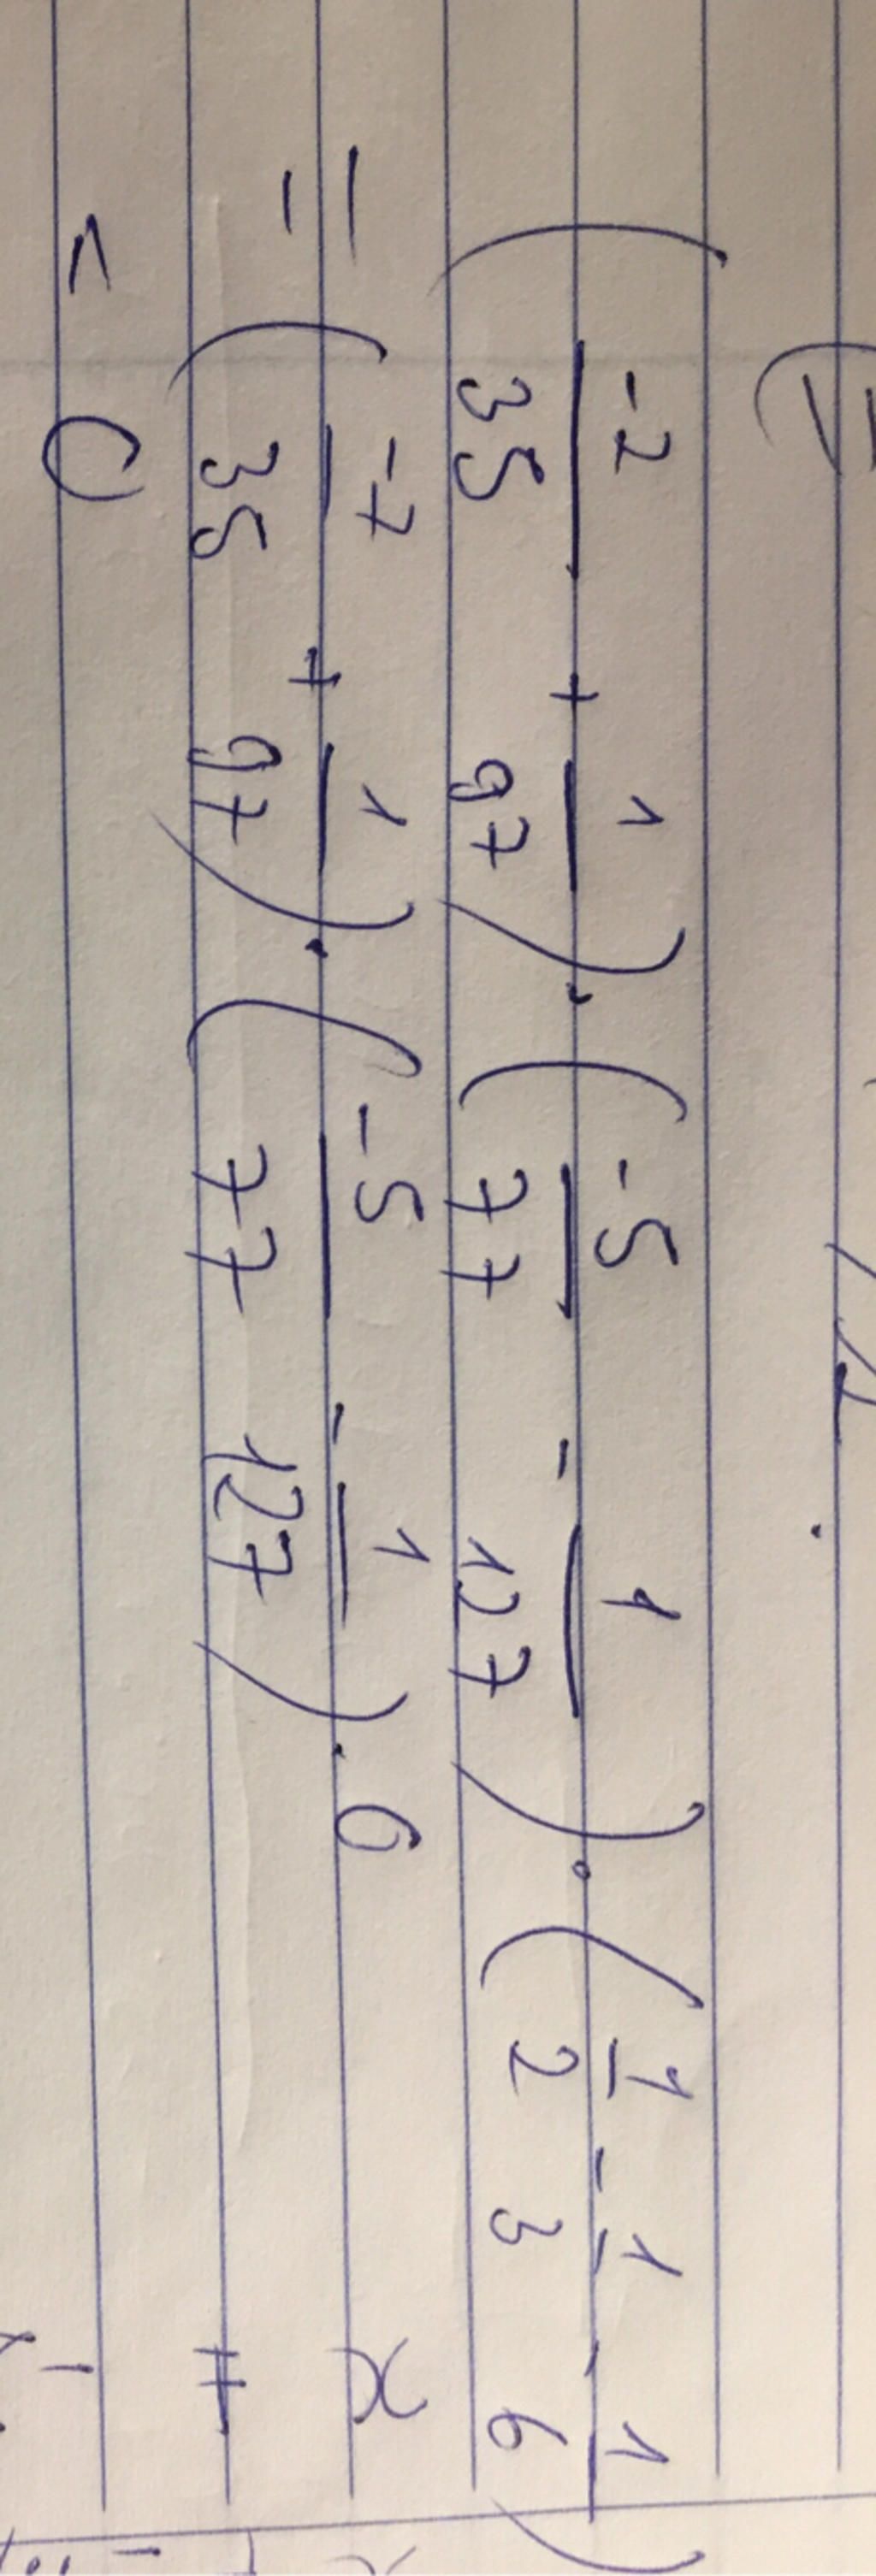 (-2/35 + 1/97) . (-5/77 - 1/127) . (1/2 - 1/3 - 1/6)
= (-7/35 + 1/97) . (-5/77 - 1/127) . 6
< 0